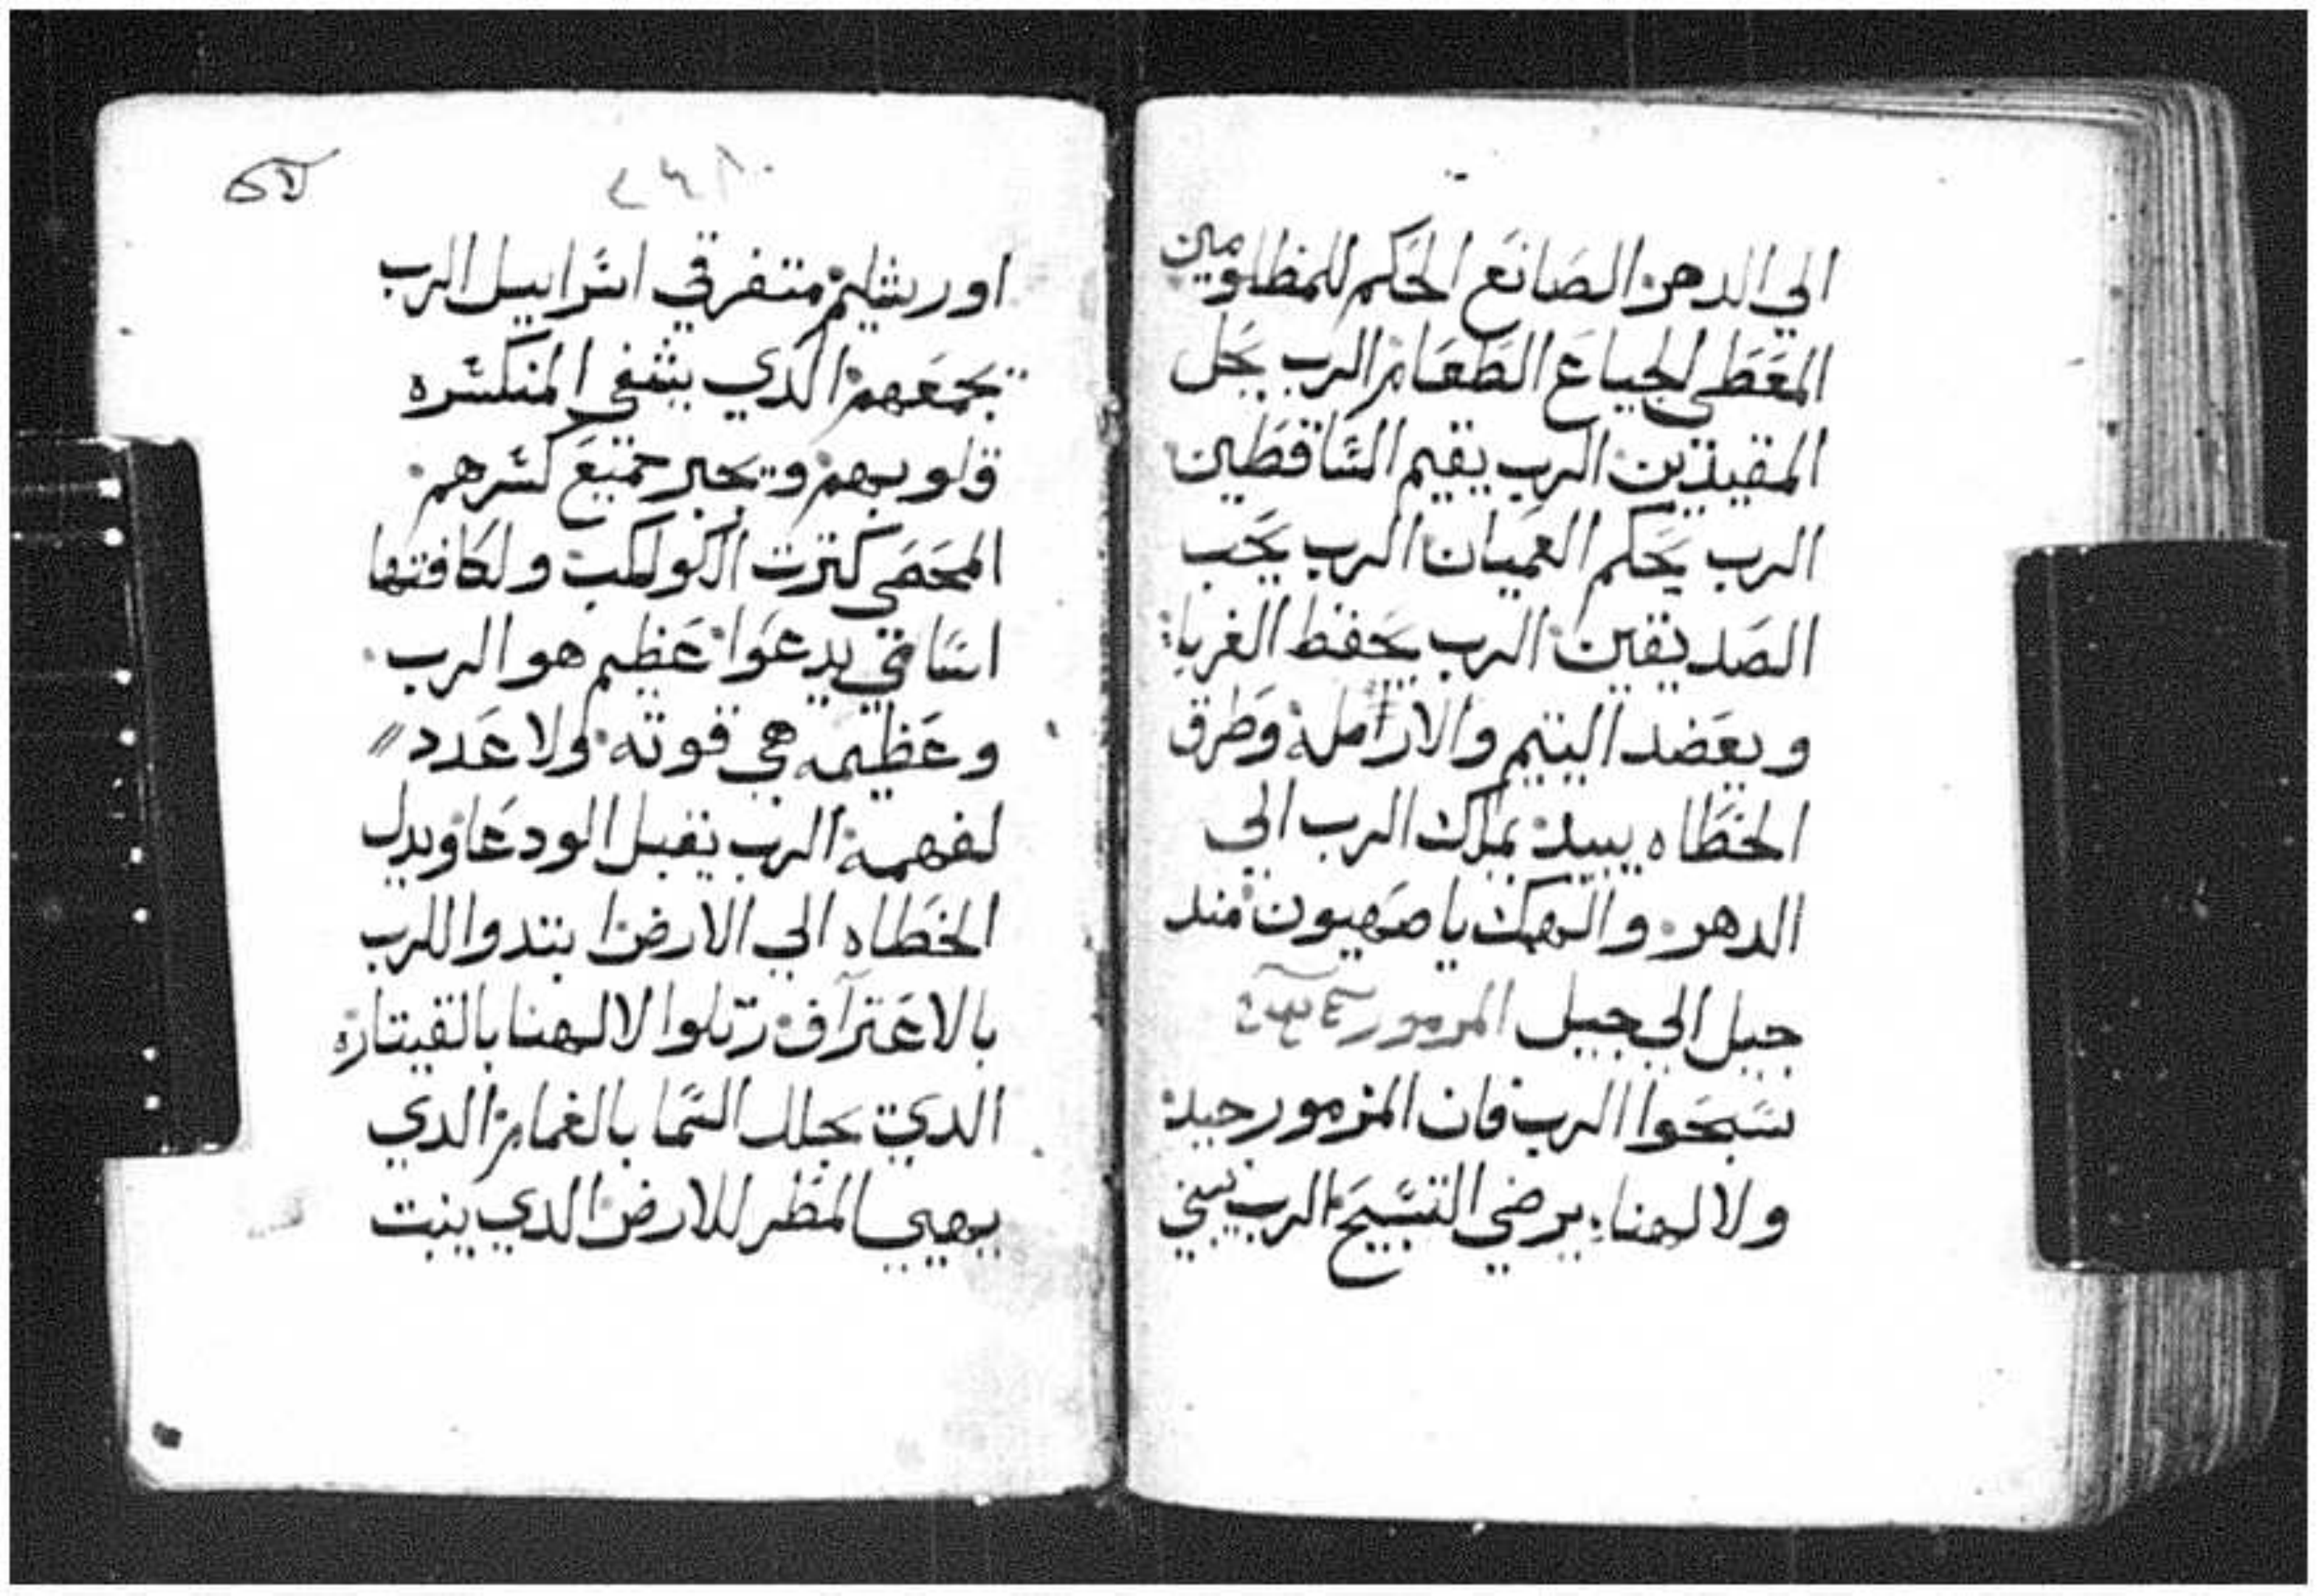 الي الدهر الصانع الحكم للمظلومين
المعطي الجياع الطعام الرب يحل
المقيدين الرب يقيم الساقطين
الرب يحكم العميان الرب يحب
الصديقين الرب يحفظ الغربا
ويعضد اليتيم والارامله وطرق
الخطاه يبيد يملك الرب الي
الدهر والهك يا صهيون مند
جيل الي جيل المزمور
سبحوا الرب فان المزمور جيد
ولالهنا يرضي التسبيح الرب يبني
اورشليم متفرقي اسراييل الرب
يجمعهم الدي يشفي المنكسره
قلوبهم ويجبر جميع كسرهم
المحصي كثرت الكواكب ولكافتها
اسامي يدعوا عظيم هو الرب
وعظيمه هي قوته ولا عدد
لفهمه الرب يقبل الودعا ويدل
الخطاه الي الارض ابتدوا للرب
بالاعتراف رتلوا لالهنا بالقيتاره
الدي يجلل السما بالغمام الدي
يهيي المطر للارض الدي ينبت